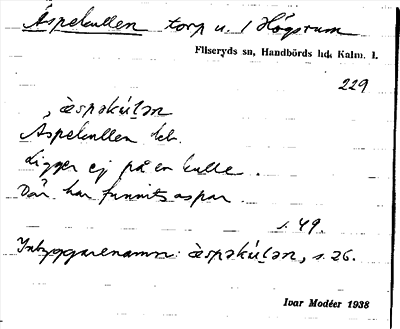 Äspekullen torp u. 1 Högsrum
Fliseryds sn, Handbörds hd, Kalm. l.
229
, æspəkúlən
Äspekullen kb.
Ligger ej på en kulle.
Där har funnits aspar.
s. 49.
Inbyggarenamn: æspəkúlən, s. 26.
Ivar Modéer 1938